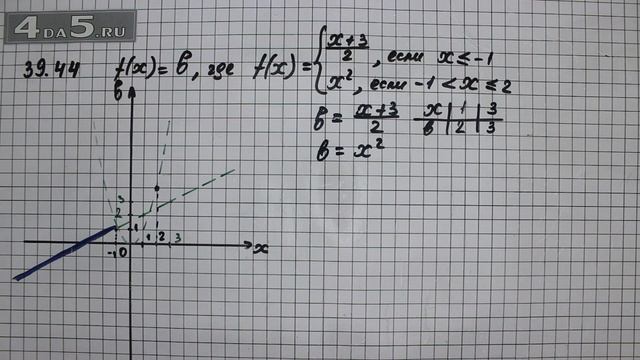 4DA5.RU
39.44 f(x) = b, где f(x) = { x+3/2, если x ≤ -1
x², если -1 < x ≤ 2
b = x+3/2 x 1 3
b 2 3
b = x²
b
3
2
1
-1 0 1 2 3 x